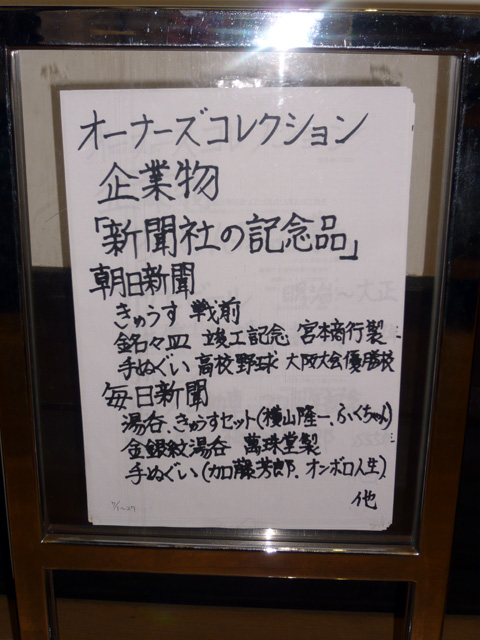 オーナーズコレクション
企業物
「新聞社の記念品」
朝日新聞
きゅうす 戦前
銘々皿 竣工記念 宮本商行製
手ぬぐい 高校野球 大阪大会優勝校
毎日新聞
湯呑、きゅうすセット(横山隆一、ふくちゃん)
金銀紋湯呑 萬珠堂製
手ぬぐい(加藤芳郎、オンボロ人生)
他